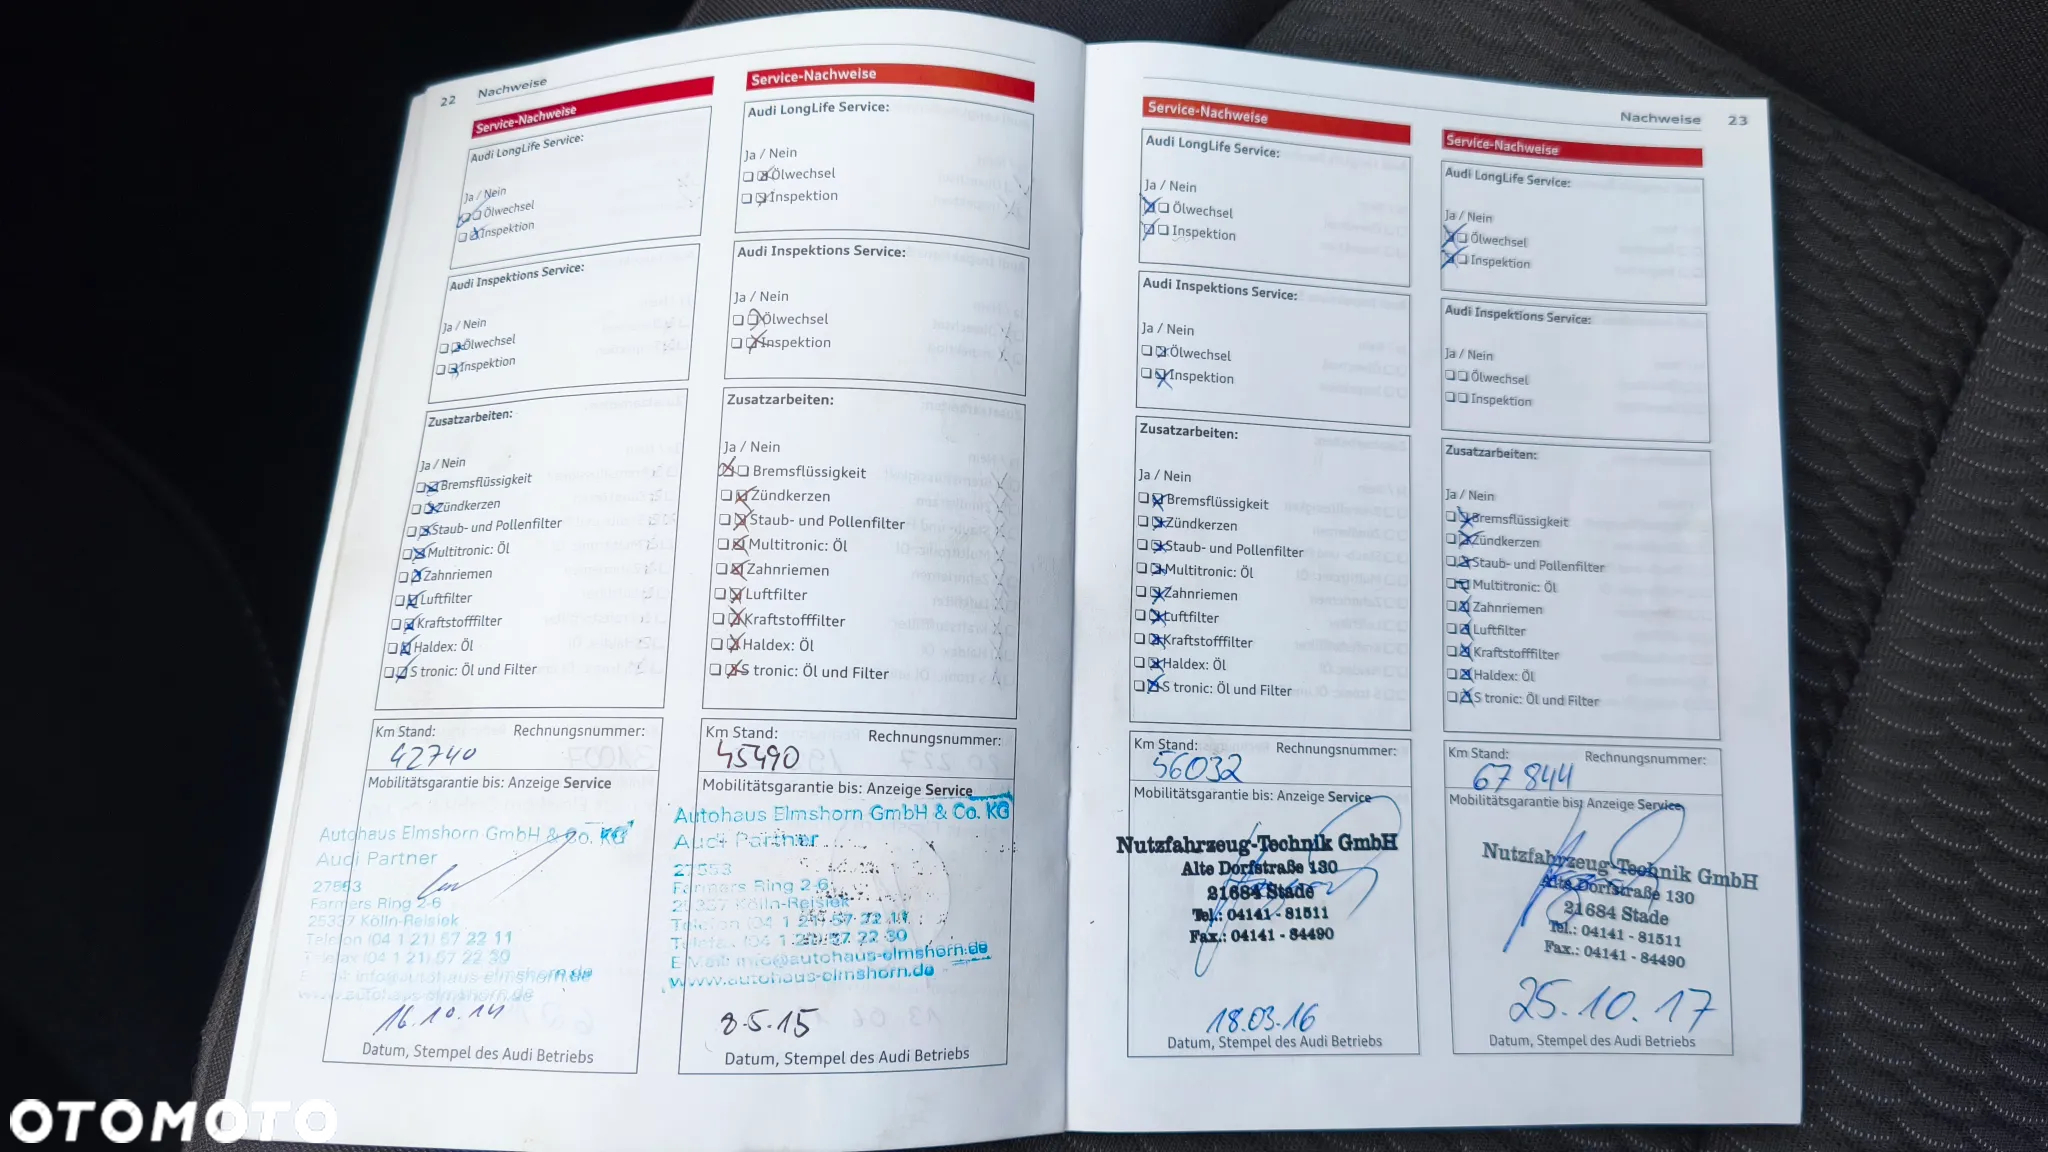 22 Nachweise
Service-Nachweise
Audi LongLife Service:
Ja / Nein
Ölwechsel
Inspektion
Audi Inspektions Service:
Ja / Nein
Ölwechsel
Inspektion
Zusatzarbeiten:
Ja / Nein
Bremsflüssigkeit
Zündkerzen
Staub- und Pollenfilter
Multitronic: Öl
Zahnriemen
Luftfilter
Kraftstofffilter
Haldex: Öl
S tronic: Öl und Filter
Km Stand: Rechnungsnummer:
42740
Mobilitätsgarantie bis: Anzeige Service
Autohaus Elmshorn GmbH & Co. KG
Audi Partner
27553
Farmers Ring 2-6
25337 Kölln-Reisiek
Telefon (04 1 21) 57 22 11
Telefax (04 1 21) 57 22 30
E-Mail: info@autohaus-elmshorn.de
www.autohaus-elmshorn.de
16.10.14
Datum, Stempel des Audi Betriebs
Service-Nachweise
Audi LongLife Service:
Ja / Nein
Ölwechsel
Inspektion
Audi Inspektions Service:
Ja / Nein
Ölwechsel
Inspektion
Zusatzarbeiten:
Ja / Nein
Bremsflüssigkeit
Zündkerzen
Staub- und Pollenfilter
Multitronic: Öl
Zahnriemen
Luftfilter
Kraftstofffilter
Haldex: Öl
S tronic: Öl und Filter
Km Stand: Rechnungsnummer:
45490
Mobilitätsgarantie bis: Anzeige Service
Autohaus Elmshorn GmbH & Co. KG
Audi Partner
27553
Farmers Ring 2-6
25337 Kölln-Reisiek
Telefon (04 1 21) 57 22 11
Telefax (04 1 21) 57 22 30
E-Mail: info@autohaus-elmshorn.de
www.autohaus-elmshorn.de
8.5.15
Datum, Stempel des Audi Betriebs
Nachweise 23
Service-Nachweise
Audi LongLife Service:
Ja / Nein
Ölwechsel
Inspektion
Audi Inspektions Service:
Ja / Nein
Ölwechsel
Inspektion
Zusatzarbeiten:
Ja / Nein
Bremsflüssigkeit
Zündkerzen
Staub- und Pollenfilter
Multitronic: Öl
Zahnriemen
Luftfilter
Kraftstofffilter
Haldex: Öl
S tronic: Öl und Filter
Km Stand: Rechnungsnummer:
56032
Mobilitätsgarantie bis: Anzeige Service
Nutzfahrzeug-Technik GmbH
Alte Dorfstraße 130
21684 Stade
Tel.: 04141 - 81511
Fax.: 04141 - 84490
18.03.16
Datum, Stempel des Audi Betriebs
Service-Nachweise
Audi LongLife Service:
Ja / Nein
Ölwechsel
Inspektion
Audi Inspektions Service:
Ja / Nein
Ölwechsel
Inspektion
Zusatzarbeiten:
Ja / Nein
Bremsflüssigkeit
Zündkerzen
Staub- und Pollenfilter
Multitronic: Öl
Zahnriemen
Luftfilter
Kraftstofffilter
Haldex: Öl
S tronic: Öl und Filter
Km Stand: Rechnungsnummer:
67 844
Mobilitätsgarantie bis: Anzeige Service
Nutzfahrzeug-Technik GmbH
Alte Dorfstraße 130
21684 Stade
Tel.: 04141 - 81511
Fax.: 04141 - 84490
25.10.17
Datum, Stempel des Audi Betriebs
OTOMOTO